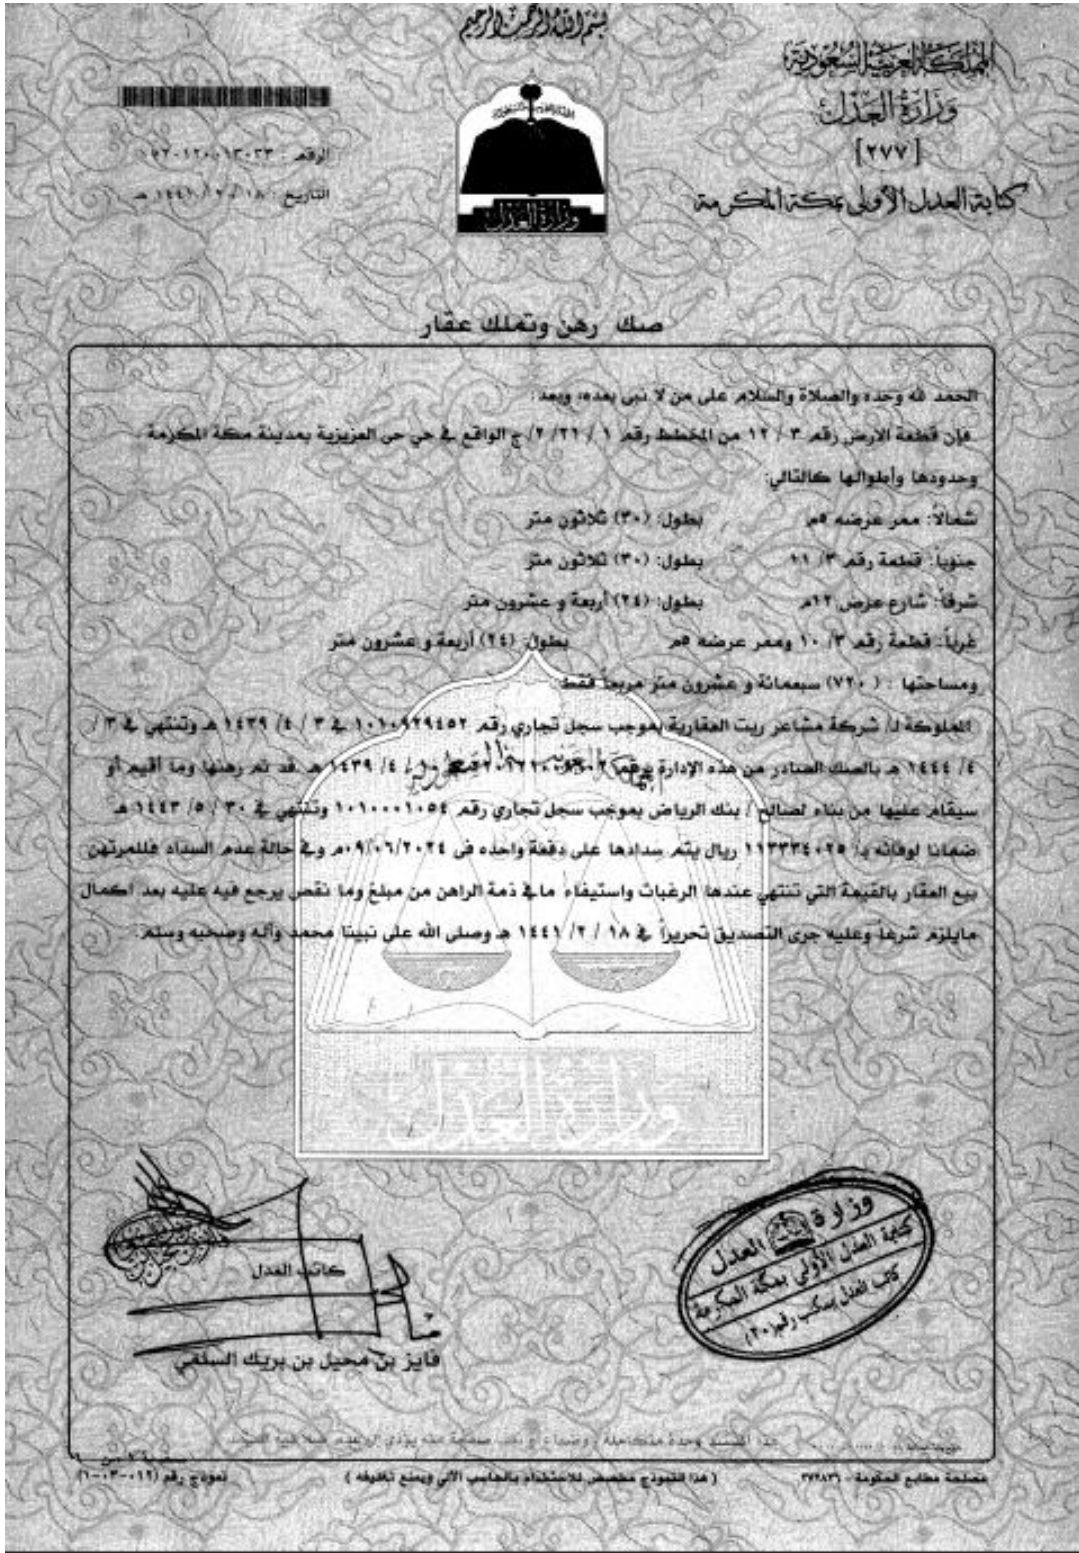 بسم الله الرحمن الرحيم
المملكة العربية السعودية
وزارة العدل
[٢٧٧]
كتابة العدل الأولى بمكة المكرمة
الرقم :
التاريخ : ١٨ / ٢ / ١٤٤١ هـ
وزارة العدل
صك رهن وتملك عقار
الحمد لله وحده والصلاة والسلام على من لا نبي بعده، وبعد:
فإن قطعة الارض رقم ٣ / ١٢ من المخطط رقم ١ / ٢١/ ٢/ ج الواقع في حي حي العزيزية بمدينة مكة المكرمة .
وحدودها وأطوالها كالتالي:
شمالاً: ممر عرضه ٥م بطول: (٣٠) ثلاثون متر
جنوباً: قطعة رقم ٣/ ١١ بطول: (٣٠) ثلاثون متر
شرقاً: شارع عرض ١٢م بطول: (٢٤) أربعة و عشرون متر
غرباً: قطعة رقم ٣/ ١٠ وممر عرضه ٥م بطول: (٢٤) أربعة و عشرون متر
ومساحتها : ( ٧٢٠) سبعمائة و عشرون متر مربعاً فقط
المملوكة لـ/ شركة مشاعر ريت العقارية بموجب سجل تجاري رقم ١٠١٠٩٢٩٤٥٢ في ٣ / ٤/ ١٤٣٩ هـ وتنتهي في ٣ /
٤/ ١٤٤٤ هـ بالصك الصادر من هذه الإدارة برقم في ١٠ / ٤/ ١٤٣٩ هـ .قد تم رهنها وما أقيم أو
سيقام عليها من بناء لصالح / بنك الرياض بموجب سجل تجاري رقم ١٠١٠٠٠١٠٥٤ وتنتهي في ٣٠ / ٥/ ١٤٤٣ هـ
ضمانا لوفائه بـ/ ١١٣٣٣٤٠٢٥ ريال يتم سدادها على دفعة واحده فى ٠٩/٠٦/٢٠٢٤م وفي حالة عدم السداد فللمرتهن
بيع العقار بالقيمة التي تنتهي عندها الرغبات واستيفاء مافي ذمة الراهن من مبلغ وما نقص يرجع فيه عليه بعد اكمال
مايلزم شرعاً وعليه جرى التصديق تحريراً في ١٨ / ٢/ ١٤٤١ هـ وصلى الله على نبينا محمد وآله وصحبه وسلم.
وزارة العدل
وزارة العدل
كتابة العدل الأولى بمكة المكرمة
كاتب العدل بمكتب رقم (٢٠)
كاتب العدل
فايز بن محيل بن بريك السلمي
مصلحة مطابع الحكومة - ٣٧٢٨٣٦
( هذا النموذج مخصص للاستخدام بالحاسب الآلي ويمنع تغليفه )
نموذج رقم (١٩-٠٣-٠١)